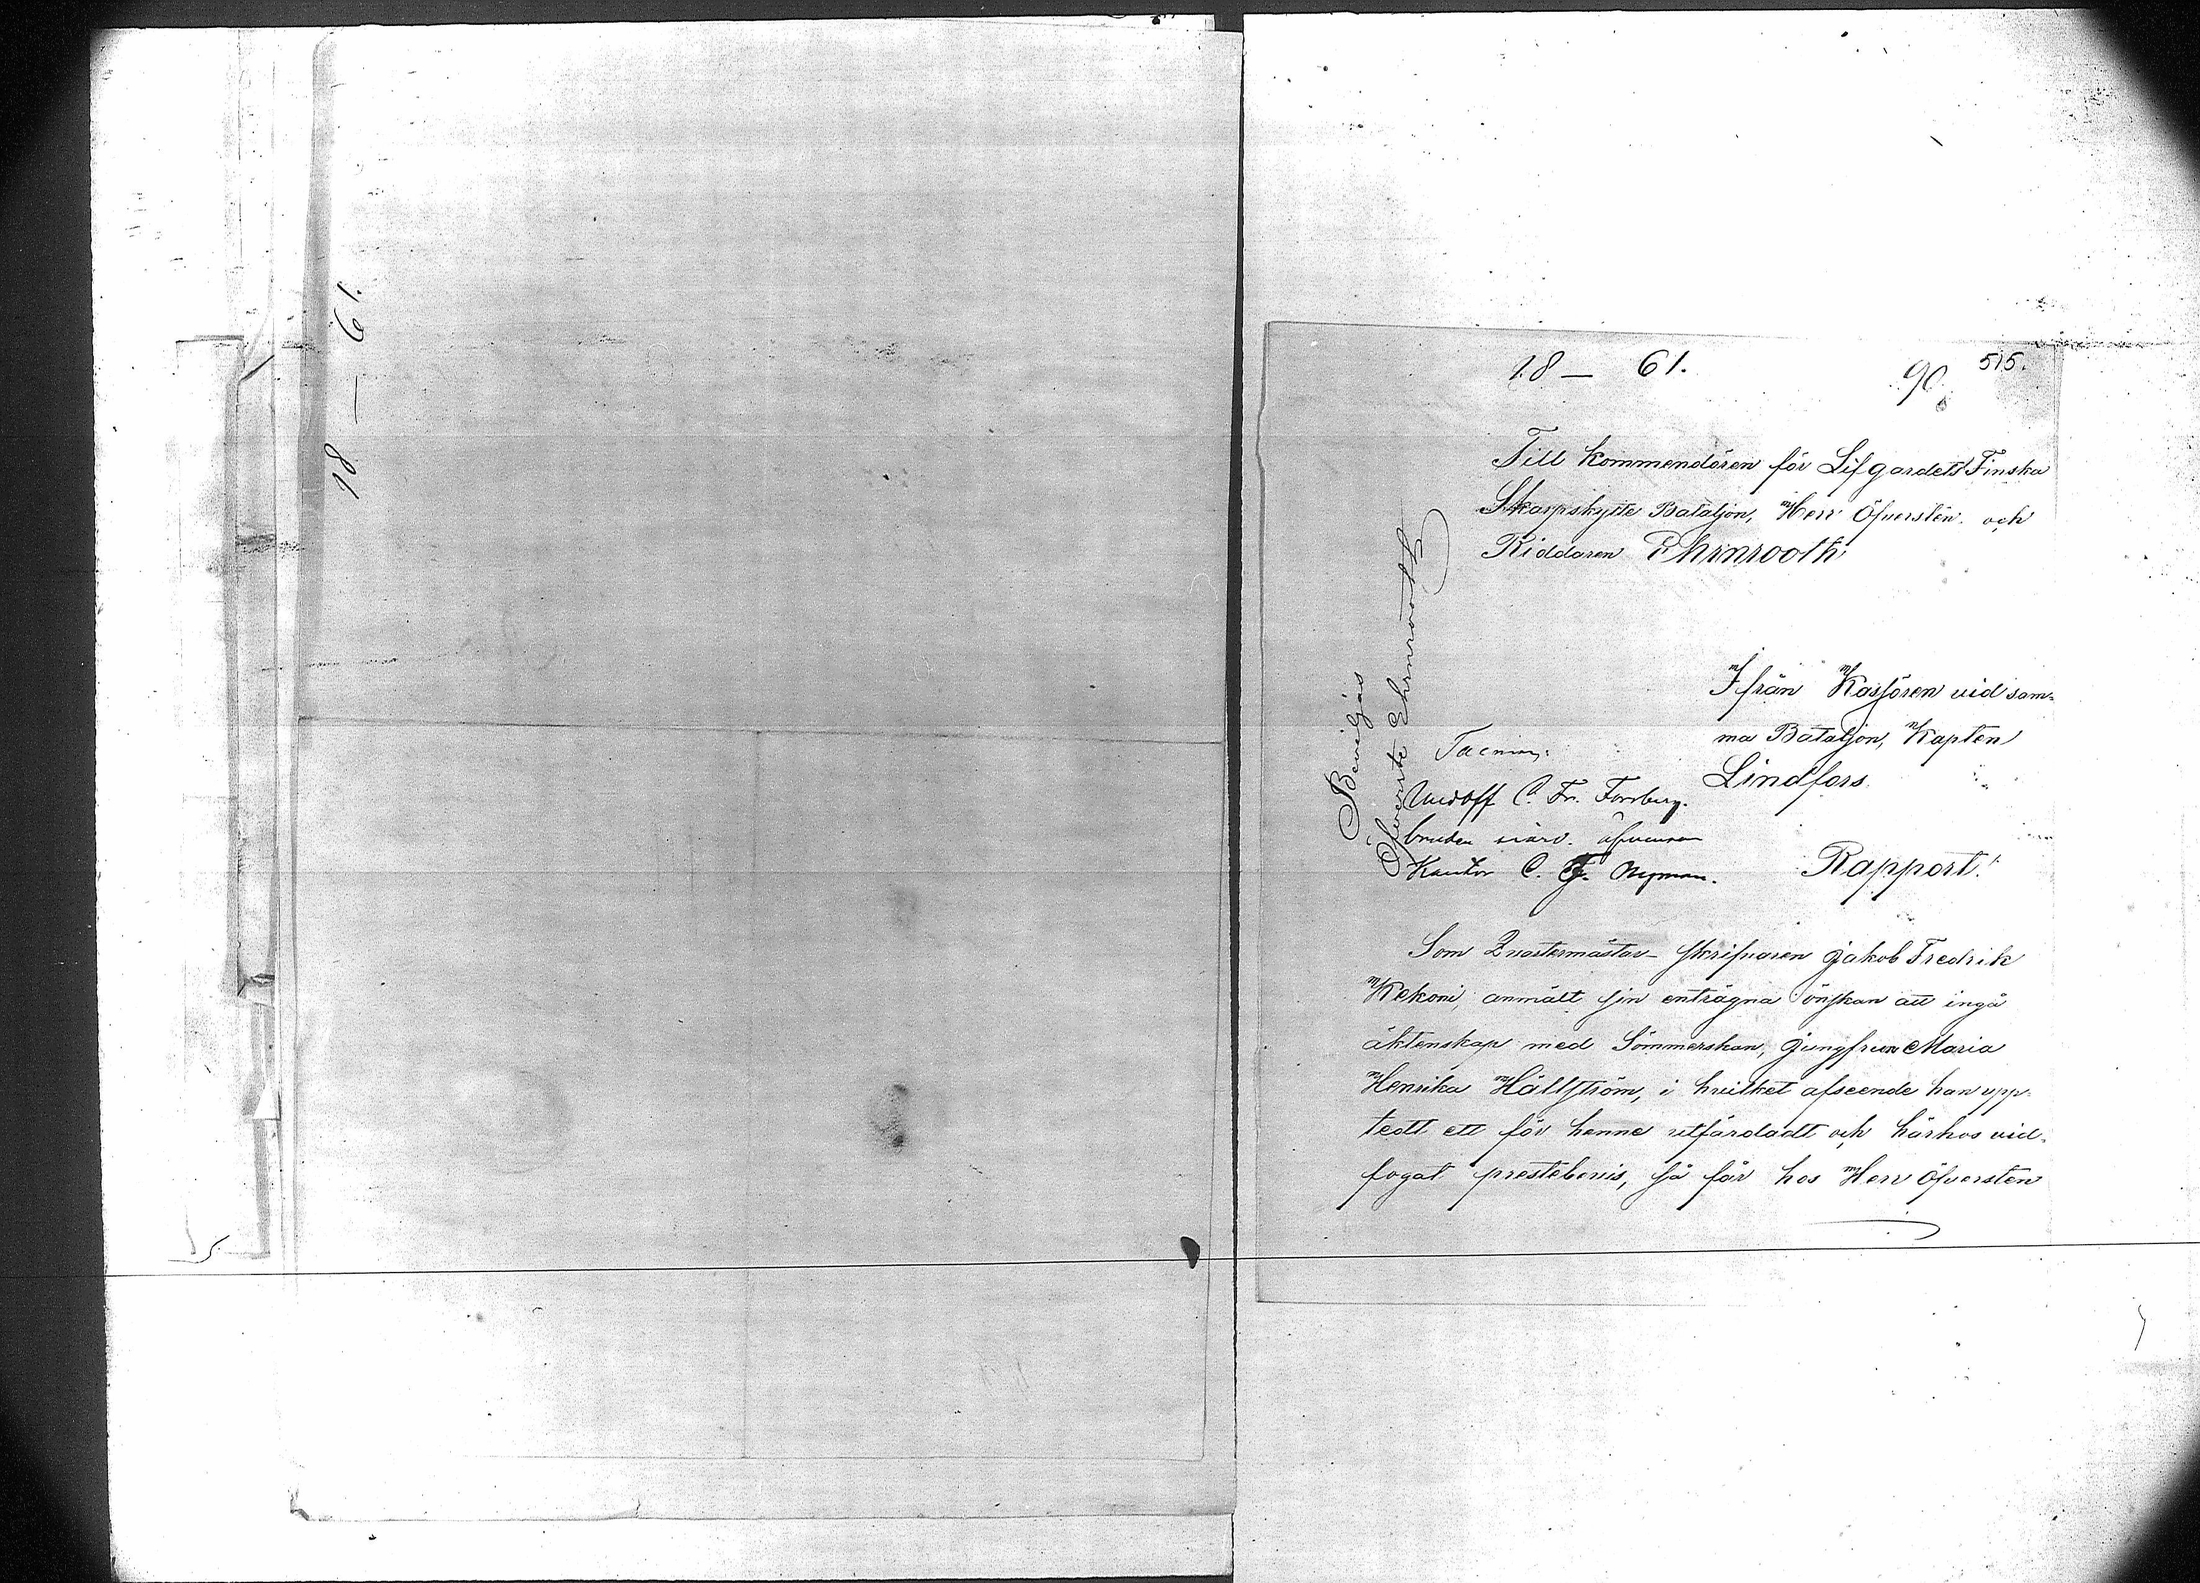 18 — 61.
18 — 61.
90.
515.
Till Kommendören för Lifgardets Finska
Skarpskytte Bataljon, Herr Öfversten och
Riddaren Ehrnrooth
Ifrån Kassören vid sam-
ma Bataljon, Kapten
Lindfors.
Beviljas
Öfverste Ehrnrooth
Undoff. C. Fr. Forsberg.
Kantor C. F. Nyman.
Rapport!
Som Quartermästar-skrifvaren Jakob Fredrik
Kekoni, anmält sin enträgna önskan att ingå
äktenskap med Sömmerskan, Jungfrun Maria
Henrika Hällström, i hvilket afseende han upp-
tedt ett för henne utfärdadt och härhos vid-
fogat prestebevis, så får hos Herr Öfversten